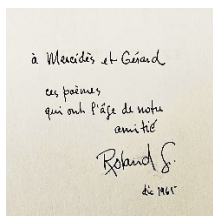 à Mercédès et Gérard
ces poèmes
qui ont l'âge de notre
amitié
Roland G.
déc 1965